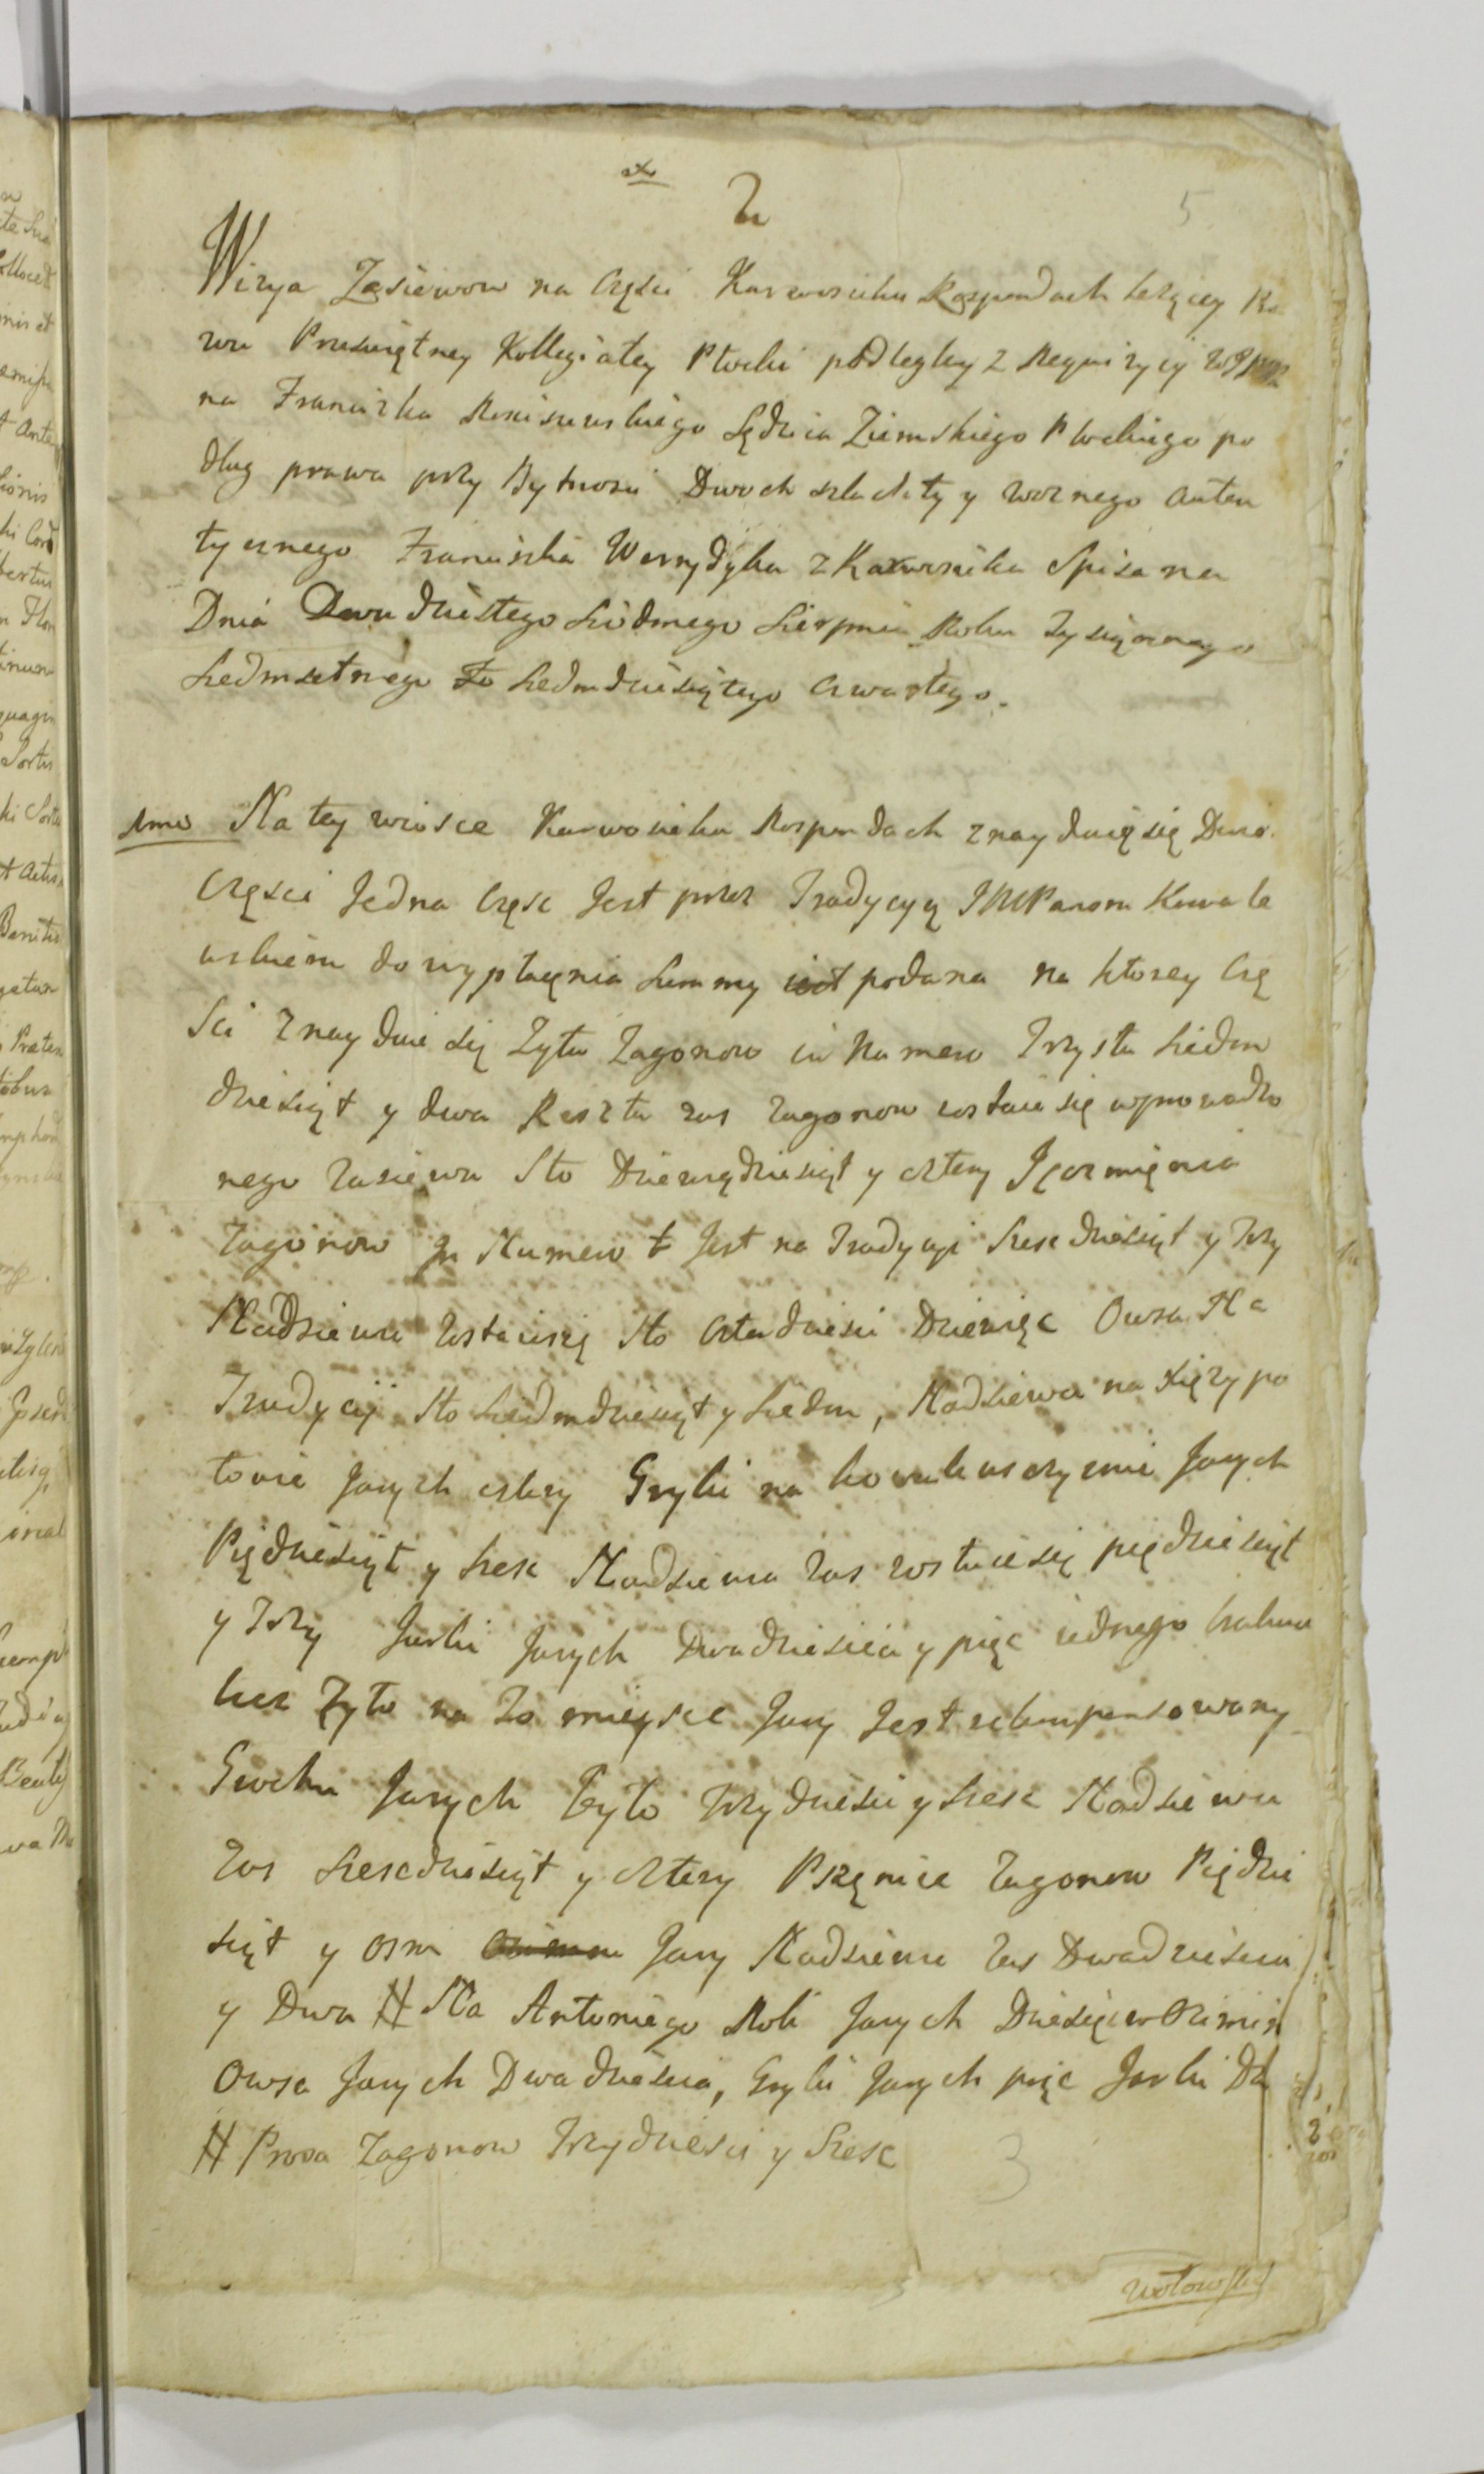 2
5
Wizya Zasiewow na Częsci Karwosieku Rospondach Leżący Ka
zwu Przeświętney Kollegiatey Płocki podległy z Requizycyi WJP
na Franciszka Sędzia Ziemskiego Płockiego po
dług prawa przy Bytnosci Dwoch szlachty y woznego auten
tycznego Franciszka Werydyka z Karwosieka Spisana
Dnia Dwudziestego Siodmego Sierpnia Roku Tysiącznego
Siedmsetnego Siedmdziesiątego czwartego.
1mo Na tey wiosce Karwosieku Rospondach znayduię się Dwie
Części Jedna Częsc Jest przez Tradycyą JMPanom Kowale
wskiem do wypłacęnia Summy iest podana na ktorey Czę
sci znayduie się Zyta Zagonow in Numero Trzysta Siedm
dziesiąt y dwa Reszta zas zagonow zostaie się
nego zasiewu Sto Dziewiędziesiąt y cztery Jęczmięnia
Zagonow in Numero Jest na Tradycyi Szescdziesiąt y Trzy
Nadsiewu Zostaie się Sto Czterdziesci Dziewięc Owsa Na
Tradycyi Sto Siedmdziesiąt y Siedm, Nadsiewu na Xięży po
łowie Jarych cztery Gryki na kowalewszczyznie Jarych
Pięcdziesiąt y szesc Nadsiewu zas zostaie się pięcdziesiąt
y Trzy Jarki Jarych Dwadziescia y pięc iednego brakuie
lecz Zyto na To mieysce Jary Jest rekompensowany
Grochu Jarych Było Trzydziesci y szesc Nadsiewu
Zas szescdziesiąt y cztery Pszęnice Zagonow Pięcdzie
siąt y osm Jary Nadsiewu zas Dwadziescia
y Dwa # Na Antoniego Roli Jarych Dziesięc w Oziminę
Owsa Jarych Dwadziescia, Gryki Jarych pięc Jarki
# Prosa Zagonow Trzydziesci y Szesc
3